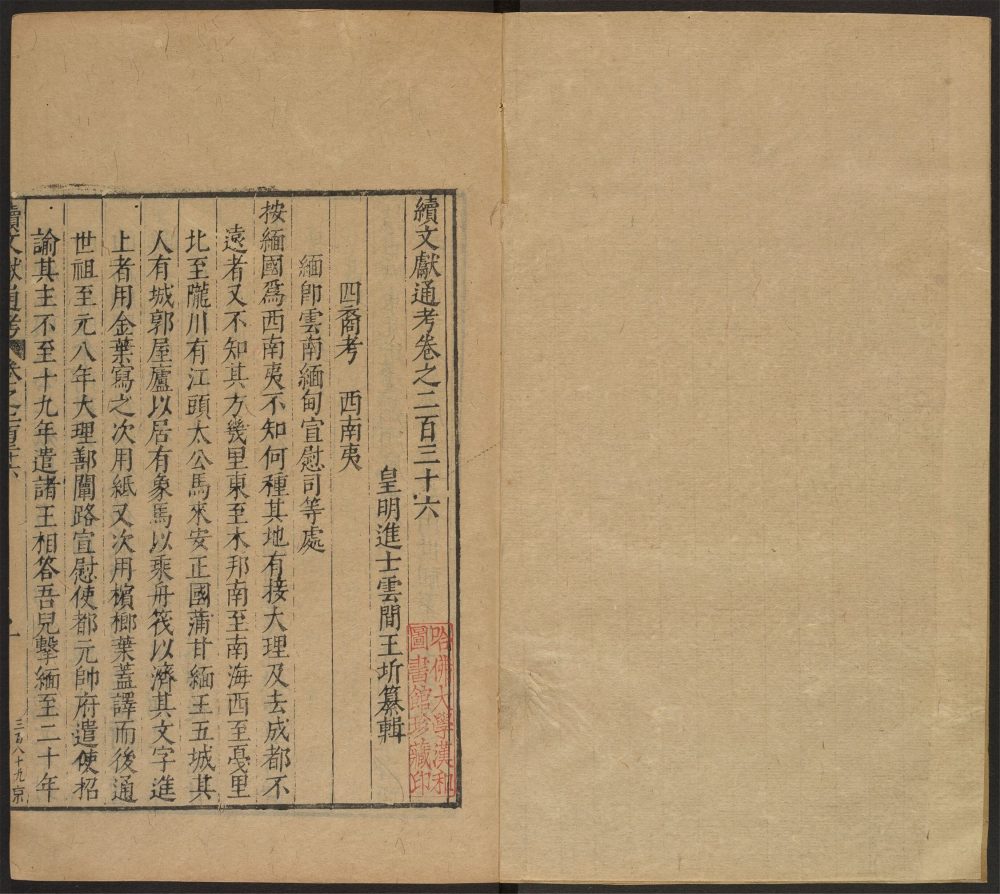 續文獻通考卷之二百三十六
皇明進士雲間王圻纂輯
四裔考　西南夷
緬卽雲南緬甸宣慰司等處
按緬國爲西南夷不知何種其地有接大理及去成都不
遠者又不知其方幾里東至木邦南至南海西至戞里
北至隴川有江頭太公馬來安正國蒲甘緬王五城其
人有城郭屋廬以居有象馬以乘舟筏以濟其文字進
上者用金葉寫之次用紙又次用檳榔葉蓋譯而後通
世祖至元八年大理鄯闡路宣慰使都元帥府遣使招
諭其主不至十九年遣諸王相答吾兒擊緬至二十年
續文獻通考 卷之二百三十六
一
三百八十九京
哈佛大學漢和
圖書館珍藏印